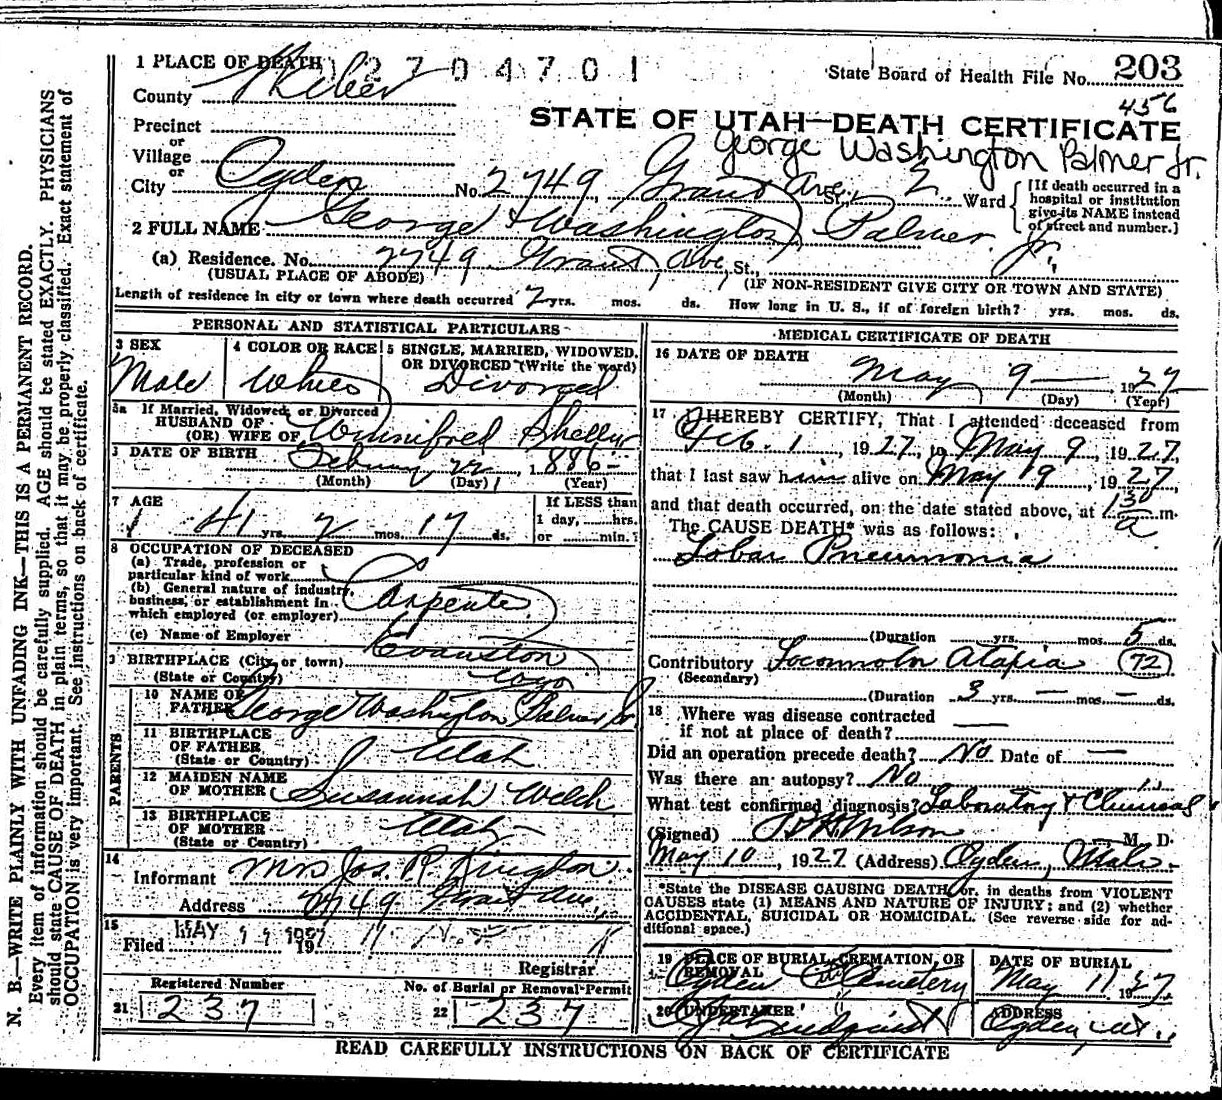 1 PLACE OF DEATH 2704701
State Board of Health File No. 203
County Weber
456
STATE OF UTAH—DEATH CERTIFICATE
Precinct
or
Village
or
George Washington Palmer Jr.
City Ogden No. 2749 Grant Ave. St., 2 Ward
[If death occurred in a hospital or institution give its NAME instead of street and number.]
2 FULL NAME George Washington Palmer Jr.
(a) Residence. No. 2749 Grant Ave, St.,
(USUAL PLACE OF ABODE) (IF NON-RESIDENT GIVE CITY OR TOWN AND STATE)
Length of residence in city or town where death occurred 2 yrs. mos. ds. How long in U. S., if of foreign birth? yrs. mos. ds.
PERSONAL AND STATISTICAL PARTICULARS
3 SEX 4 COLOR OR RACE 5 SINGLE, MARRIED, WIDOWED,
OR DIVORCED (Write the word)
Male White Divorced
5a If Married, Widowed, or Divorced
HUSBAND OF
(OR) WIFE OF Winnifred
DATE OF BIRTH 22, 1886
(Month) (Day) (Year)
7 AGE If LESS than
1 day, hrs.
41 yrs. 2 mos. 17 ds. or min.
8 OCCUPATION OF DECEASED
(a) Trade, profession or
particular kind of work
(b) General nature of industry,
business, or establishment in
which employed (or employer) Carpenter
(c) Name of Employer
BIRTHPLACE (City or town) Evanston
(State or Country) Wyo
PARENTS
10 NAME OF
FATHER George Washington Palmer Sr
11 BIRTHPLACE
OF FATHER
(State or Country) Utah
12 MAIDEN NAME
OF MOTHER Susannah Welch
13 BIRTHPLACE
OF MOTHER
(State or Country) Utah
14
Informant Mrs Jos. R.
Address 2749 Grant Ave,
15
Filed MAY 19
Registrar
Registered Number No. of Burial or Removal Permit
21 237 22 237
MEDICAL CERTIFICATE OF DEATH
16 DATE OF DEATH
May 9 1927
(Month) (Day) (Year)
17 I HEREBY CERTIFY, That I attended deceased from
Feb. 1, 1927, to May 9, 1927,
that I last saw him alive on May 9, 1927,
and that death occurred, on the date stated above, at 1 30 a m.
The CAUSE DEATH* was as follows:
Lobar Pneumonia
(Duration yrs. mos. 5 ds.
Contributory Locomotor Ataxia 72
(Secondary)
(Duration 3 yrs. — mos. — ds.
18 Where was disease contracted
if not at place of death? —
Did an operation precede death? No Date of —
Was there an autopsy? No
What test confirmed diagnosis? Laboratory & Clinical
(Signed) Wilson M. D.
May 10, 1927 (Address) Ogden, Utah.
*State the DISEASE CAUSING DEATH, or, in deaths from VIOLENT
CAUSES state (1) MEANS AND NATURE OF INJURY; and (2) whether
ACCIDENTAL, SUICIDAL OR HOMICIDAL. (See reverse side for ad-
ditional space.)
19 PLACE OF BURIAL, CREMATION, OR
REMOVAL
Ogden City Cemetery
DATE OF BURIAL
May 11 1927
20 UNDERTAKER
Lindquist
ADDRESS
Ogden, Ut.
READ CAREFULLY INSTRUCTIONS ON BACK OF CERTIFICATE
N. B.—WRITE PLAINLY WITH UNFADING INK—THIS IS A PERMANENT RECORD.
Every item of information should be carefully supplied. AGE should be stated EXACTLY. PHYSICIANS
should state CAUSE OF DEATH in plain terms, so that it may be properly classified. Exact statement of
OCCUPATION is very important. See instructions on back of certificate.